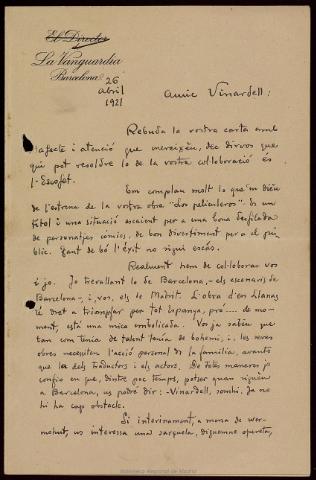 El Director
La Vanguardia
Barcelona
26
abril
1921
amic Vinardell:
Rebuda la vostra carta amb
l'afecte i atenció que mereixeu, dec dir-vos que
qui pot resoldre lo de la vostra col·laboració és
l'Escofet.
Em complau molt lo que'm dieu
de l'estrena de la vostra obra "Los pelienteros". Es un
títol i una situació escaient per a una bona desfilada
de personatjes còmics, de bon divertiment per a el pú-
blic. Tant de bó l'éxit no sigui escàs.
Realment hem de col·laborar vos
i jo. Jo treballant lo de Barcelona, - els escenaris de
Barcelona - i, vos, els de Madrid. L'obra d'en Llanas
té dret a triomfar per tot Espanya, pró .... de mo-
ment, està una mica embolicada. Vos ja sabeu que
tan com tenia de talent tenia de bohemi, i, les seves
obres necesiten l'acció personal de la familia, avants
que la dels traductors i els actors. De totes maneres jo
confio en que, dintre poc temps, potser quan sigueu
a Barcelona, us podré dir: - Vinardell, somhi. Ja no
hi ha cap obstacle.
Si interinament, a mena de ver-
mohut, us interessa una sarsuela, diguemne opereta,
Biblioteca Regional de Madrid